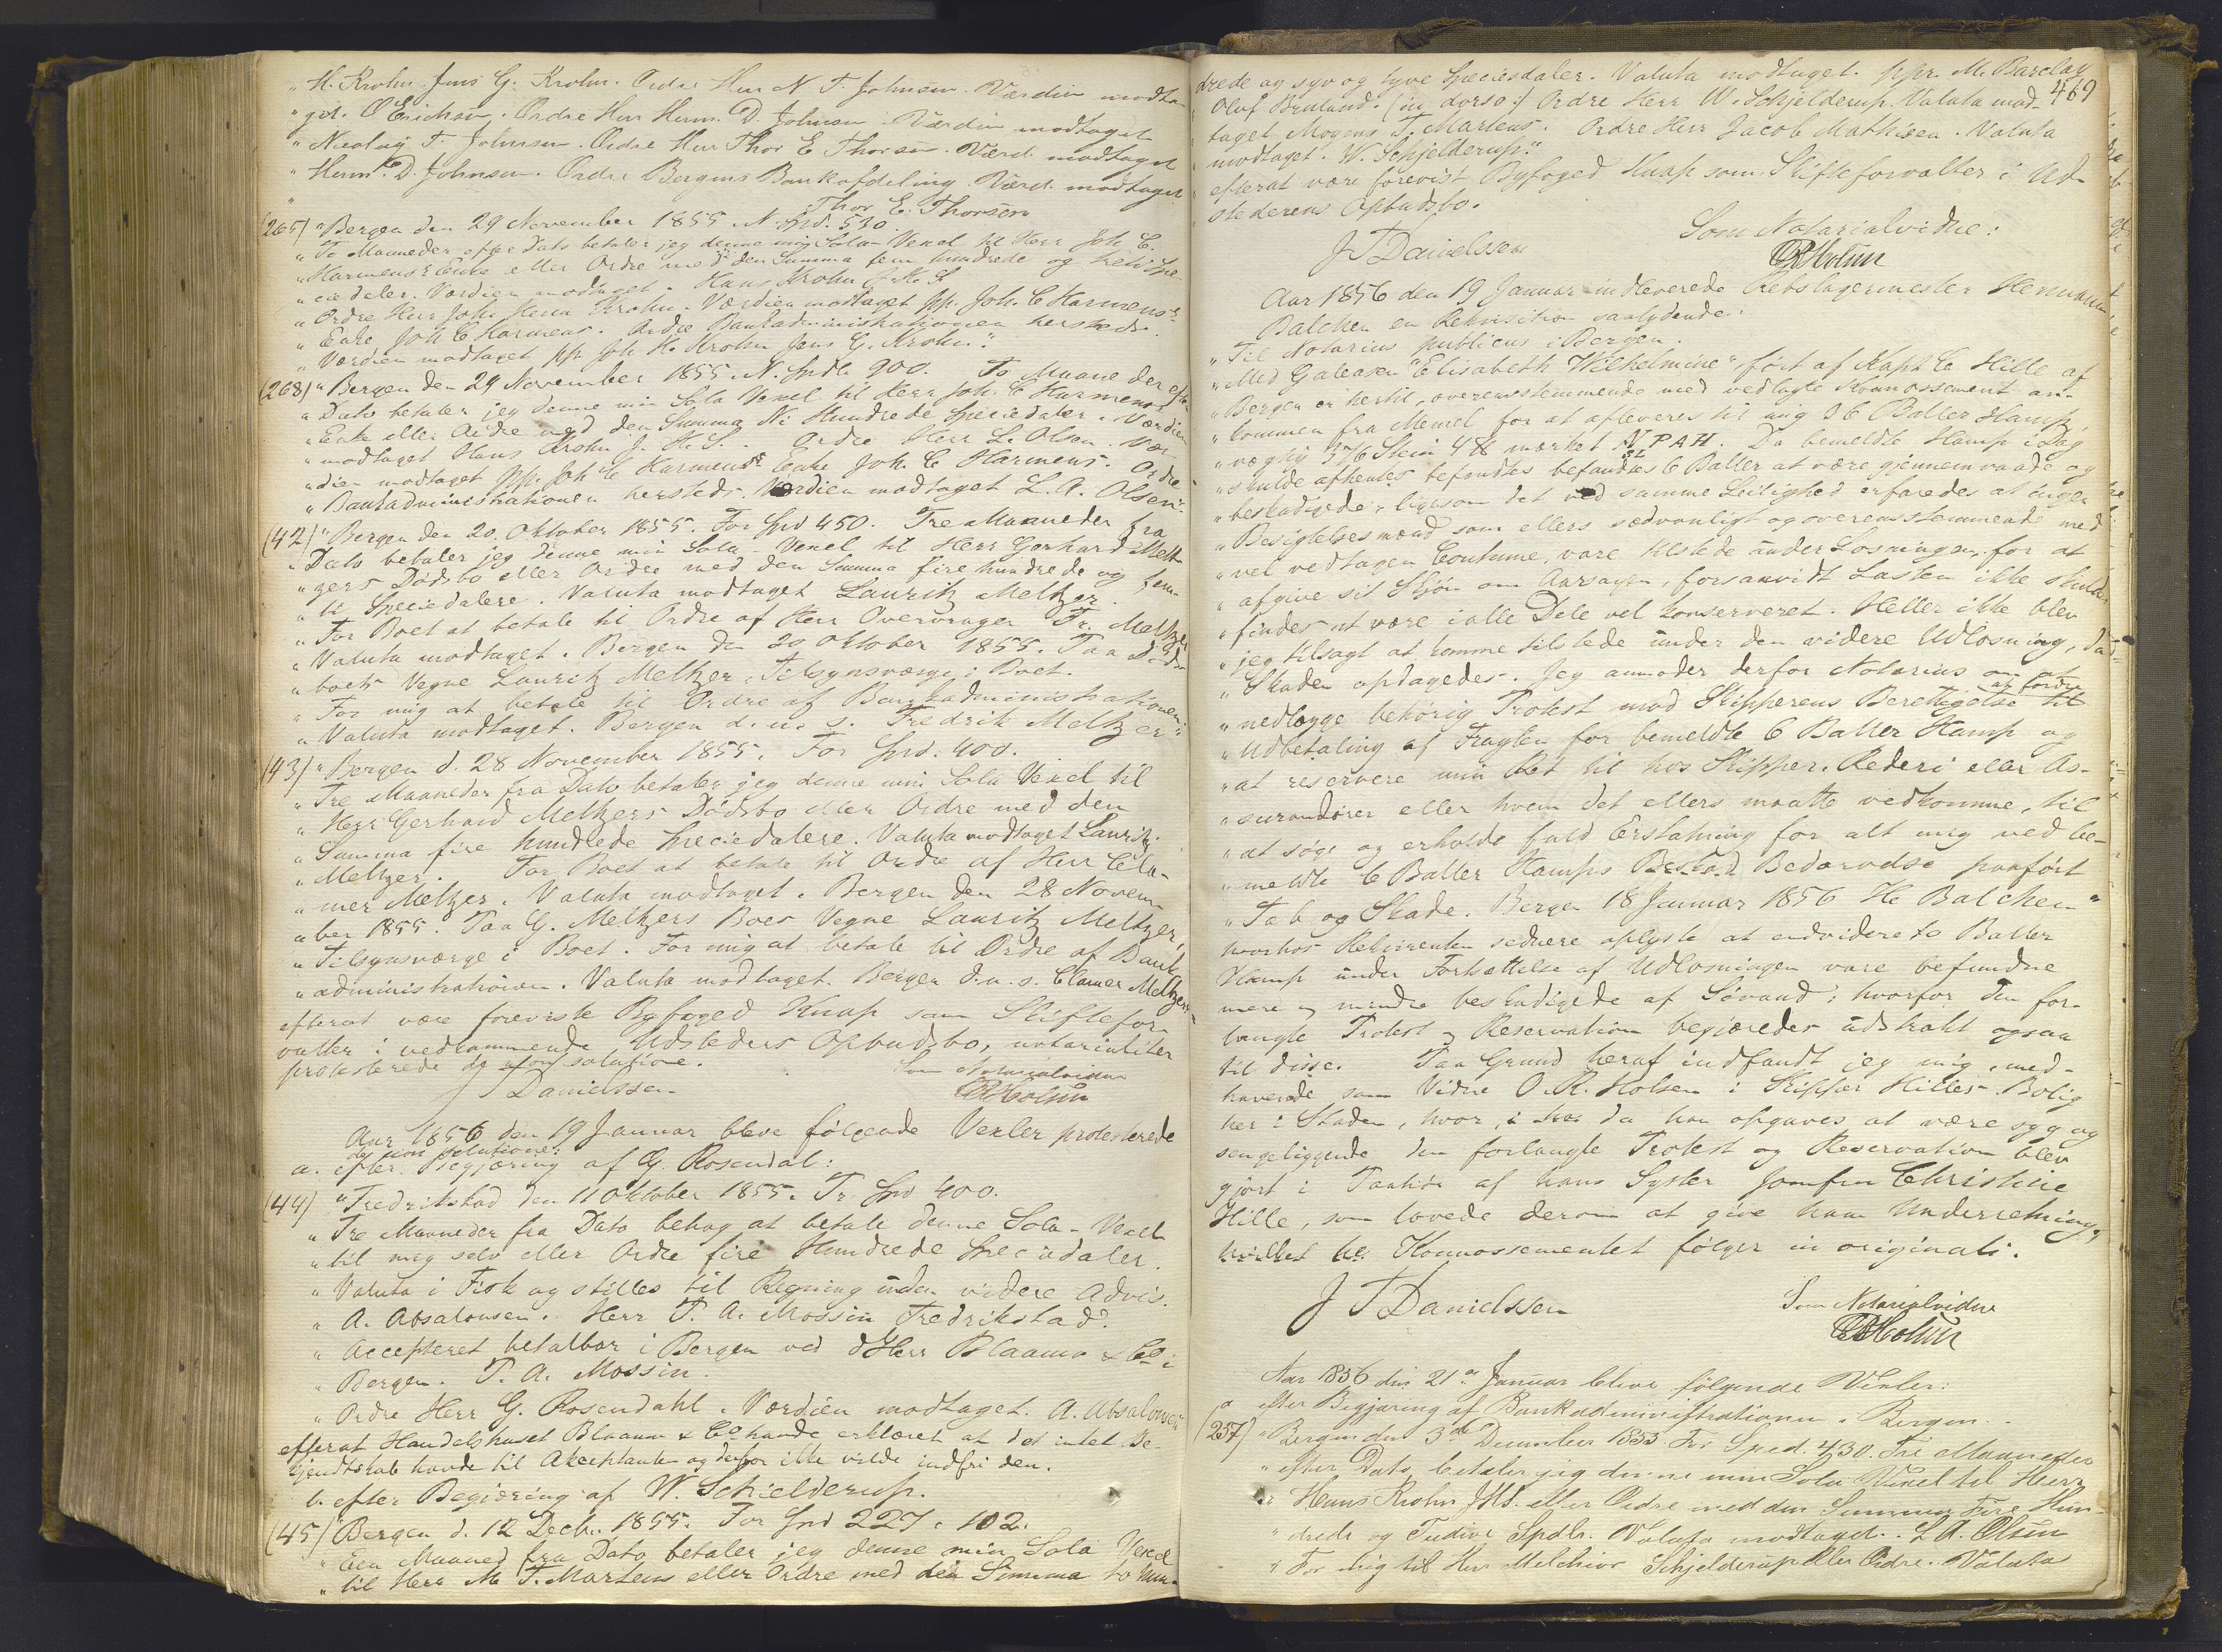 " H. Krohn. Jens G. Krohn. Ordre Herr N. T. Johnsen. Værdien modta-
" get. O Erichsen. Ordre Herr Herm. D. Johnsen. Værdien modtaget
" Nicolay T. Johnsen. Ordre Herr Thor E Thorsen. Værd. modtaget
" Herm. D. Johnsen. Ordre Bergens Bankafdeling. Værd. modtaget
" Thor E. Thorsen
(265) "Bergen den 29 November 1855. N. Spd. 530.
" To Maaneder efter Dato betaler jeg denne min Sola Vexel til Herr Joh C.
" Harmens's Enke eller Ordre med den Summa fem hundrede og treti Spe-
" ciedaler. Værdien modtaget. Hans Krohn J. H. S
" Ordre Herr Joh. Herm Krohn. Værdien modtaget pp. Joh. C Harmens's
" Enke Joh C Harmens. Ordre Bankadministrationen hersteds.
" Værdien modtaget pp Joh H. Krohn Jens G. Krohn."
(268) " Bergen den 29 November 1855. N. Spdlr 900. To Maaneder efter
" Dato betaler jeg denne min Sola Vexel til Herr Joh. C Harmens's
" Enke eller Ordre med den Summa Ni Hundrede Speciedaler. Værdien
" modtaget Hans Krohn J. H. S. Ordre Herr L. Olsen. Vær-
" dien modtaget pp. Joh C Harmens's Enke Joh. C Harmens. Ordre
" Bankadministrationen hersteds. Værdien modtaget L. A. Olsen".
(42) " Bergen den 20. Oktober 1855. For Spd 450. Tre Maaneder fra
" Dato betaler jeg denne min Sola-Vexel til Herr Gerhard Melt-
" zers Dødsbo eller Ordre med den Summa fire hundrede og fem-
" ti Speciedalere. Valuta modtaget Lauritz Meltzer.
" For Boet at betale til Ordre af Herr Overvrager Fr. Meltzer
" Valuta modtaget. Bergen den 20 Oktober 1855. Paa Døds-
" boets Vegne Lauritz Meltzer, Tilsynsværge i Boet.
" For mig at betale til Ordre af Bankadministrationen
" Valuta modtaget. Bergen d. u. s. Fredrik Meltzer"
(43) " Bergen d. 28 November 1855. For Spd. 400.
" Tre Maaneder fra Dato betaler jeg denne min Sola Vexel til
" Herr Gerhard Meltzers Dødsbo eller Ordre med den
" Summa fire hundrede Speciedalere. Valuta modtaget Lauritz
" Meltzer. For Boet at betale til Ordre af Herr Cla-
" mer Meltzer. Valuta modtaget. Bergen den 28 Novem-
" ber 1855. Paa G. Meltzers Boes Vegne Lauritz Meltzer,
" Tilsynsværge i Boet. For mig at betale til Ordre af Bank-
" administrationen. Valuta modtaget. Bergen d. u. s. Clamer Meltzer"
efterat være foreviste Byfoged Knap som Skiftefor-
valter i vedkommende Udsteders Opbudsbo, notarialiter
protesterede de non solutione.
J T Danielssen
Som Notarialvidne
OR Holsen
Aar 1856 den 19 Januar bleve følgende Vexler protesterede
de non solutione:
a. efter Begjæring af G. Rosendal:
(44) " Fredrikstad den 11 Oktober 1855. Pr. Spd 400.
" Tre Maaneder fra Dato behag at betale denne Sola-Vexel
" til mig selv eller Ordre fire Hundrede Speciedaler.
" Valuta i Fisk og stilles til Regning uden videre Advis.
" A. Absalonsen. Herr P. A. Mossin Fredrikstad.
" Accepteret betalbar i Bergen ved dHerr Blaauw & Co i
" Bergen. P. A. Mossin.
" Ordre Herr G. Rosendahl. Værdien modtaget. A. Absalonsen"
efterat Handelshuset Blaauw & Co havde erklæret at det intet Be-
kjendtskab havde til Akceptanten og derfor ikke vilde indfri den.
b. efter Begjæring af W. Schielderup.
(45) "Bergen d. 12 Decbr. 1855. For Spd 227. 102.
" Een Maaned fra Dato betaler jeg denne min Sola Vexel
" til Herr M. T. Martens eller Ordre med den Summa to hun-
469
drede og syv og tyve Speciesdaler. Valuta modtaget. ppr. M. Barclay
" Oluf Bruland. (in dorso:) Ordre Herr W. Schjelderup. Valuta mod-
" taget Mogens T. Martens. Ordre Herr Jacob Mathisen. Valuta
" modtaget. W. Schjelderup."
efterat være forevist Byfoged Knap som Skifteforvalter i Ud-
stederens Opbudsbo.
Som Notarialvidne:
J T Danielssen
OR Holsen
Aar 1856 den 19 Januar indleverede Rebslagermester Hermann
Balchen en Rekvisition saalydende:
" Til Notarius publicus i Bergen.
" Med Galeasen "Elisabeth Wilhelmine" ført af Kapt C Hille af
" Bergen er hertil, overensstemmende med vedlagte Konnossement an-
" kommen fra Memel for at afleveres til mig 36 Baller Hamp,
" vægtig 376 Stein 4 ℔ mærket NPAH. Da bemeldte Hamp idag
" skulde afhentes befandtes befandtes 6 Baller at være gjennemvaade og
" beskadigede, ligesom det ved samme Leilighed erfaredes at ingen
" Besigtelsesmænd som ellers sædvanligt og overensstemmende med
" vel vedtagen Coutume, vare tilstede under Losningen for at
" afgive sit Skjøn om Aarsagen, forsaavidt Lasten ikke skulde
" findes at være i alle Dele vel konserveret. Heller ikke blev
" jeg tilsagt at komme tilstede under den videre Udlosning, da
" Skaden opdagedes. Jeg anmoder derfor Notarius om at
" nedlægge behørig Protest mod Skipperens Berettigelse til at fordre
" Udbetaling af Fragten for bemeldte 6 Baller Hamp og
" at reservere min Ret til hos Skipper, Rederi eller As-
" surandører eller hvem det ellers maatte vedkomme, til
" at søge og erholde fuld Erstatning for alt mig ved be-
" meldte 6 Baller Hamps Bedærvelse paaført
" Tab og Skade. Bergen 18 Januar 1856 H. Balchen"
hvorhos Rekvirenten sednere oplyste at endvidere to Baller
Hamp under Fortsættelse af Udlosningen vare befundne
mere og mindre beskadigede af Søvand; hvorfor den for-
langte Protest og Reservation begjæredes udstrakt ogsaa
til disse. Paa Grund heraf indfandt jeg mig, med-
havende som Vidne O. R. Holsen i Skipper Hilles Bolig
her i Staden, hvor, da han opgaves at være syg og
sengeliggende den forlangte Protest og Reservation blev
gjort i Paahør af hans Syster Jomfru Christine
Hille, som lovede derom at give ham Underretning,
Konnossementet følger in originali.
J T Danielssen
Som Notarialvidne
OR Holsen
Aar 1856 den 21de Januar bleve følgende Vexler:
a efter Begjæring af Bankadministrationen i Bergen.
(257) "Bergen den 3de December 1855 For Spcd. 430. Tre Maaneder
" efter Dato betaler jeg denne min Sola Vexel til Herr
" Hans Krohn JHS. eller Ordre med den Summa Fire Hun-
" drede og Tredive Spdlr. Valuta modtaget. L A. Olsen
" For mig til Herr Melchior Schjelderup eller Ordre. Valuta